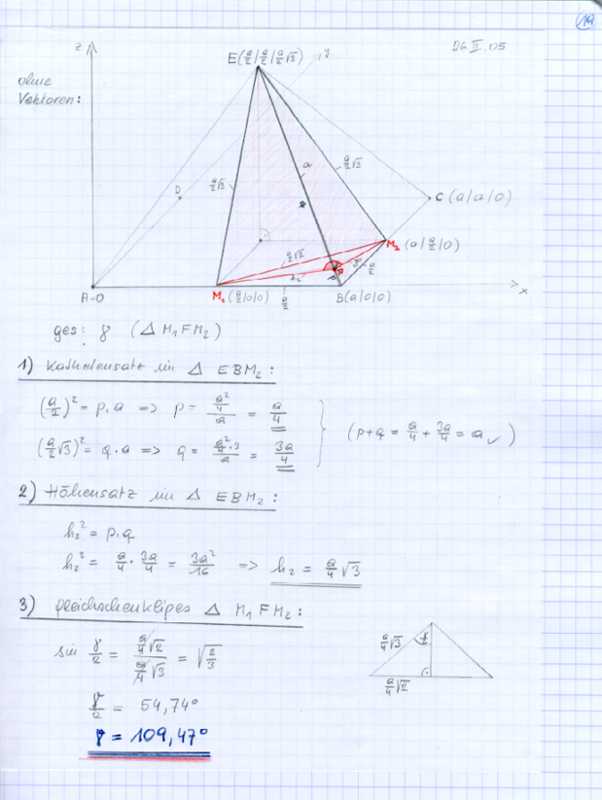 19
26.II.05
z
E(a/2|a/2|a/2√2)
y
ohne
Vektoren:
a
a/2√3
a/2√3
D
C (a|a|0)
M₂ (a|a/2|0)
a/2√2
F
p
a/2
h₂
A=O
M₁ (a/2|0|0)
a/2
B(a|0|0)
x
ges: γ (Δ M₁FM₂)
1) Kathetensatz im Δ EBM₂:
(a/2)² = p·a => p = (a²/4)/a = a/4
(a/2√3)² = q·a => q = (a²/4·3)/a = 3a/4
(p+q = a/4 + 3a/4 = a ✓)
2) Höhensatz im Δ EBM₂:
h₂² = p·q
h₂² = a/4 · 3a/4 = 3a²/16 => h₂ = a/4 √3
3) gleichschenkliges Δ M₁FM₂:
sin γ/2 = (a/4√2)/(a/4√3) = √(2/3)
a/4√3
γ/2
a/4√2
γ/2 = 54,74°
γ = 109,47°